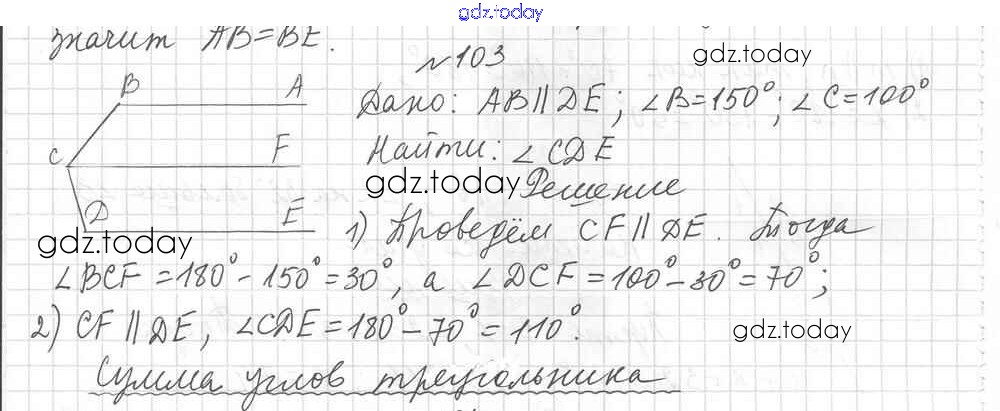 gdz.today
значит AB=BE.
№103
gdz.today
B A
Дано: AB∥DE; ∠B=150°; ∠C=100°
C F
Найти: ∠CDE
gdz.today
Решение
D E
gdz.today
1) Проведём CF∥DE. Тогда
∠BCF=180°-150°=30°, а ∠DCF=100°-30°=70°;
2) CF∥DE, ∠CDE=180°-70°=110°.
gdz.today
Сумма углов треугольника